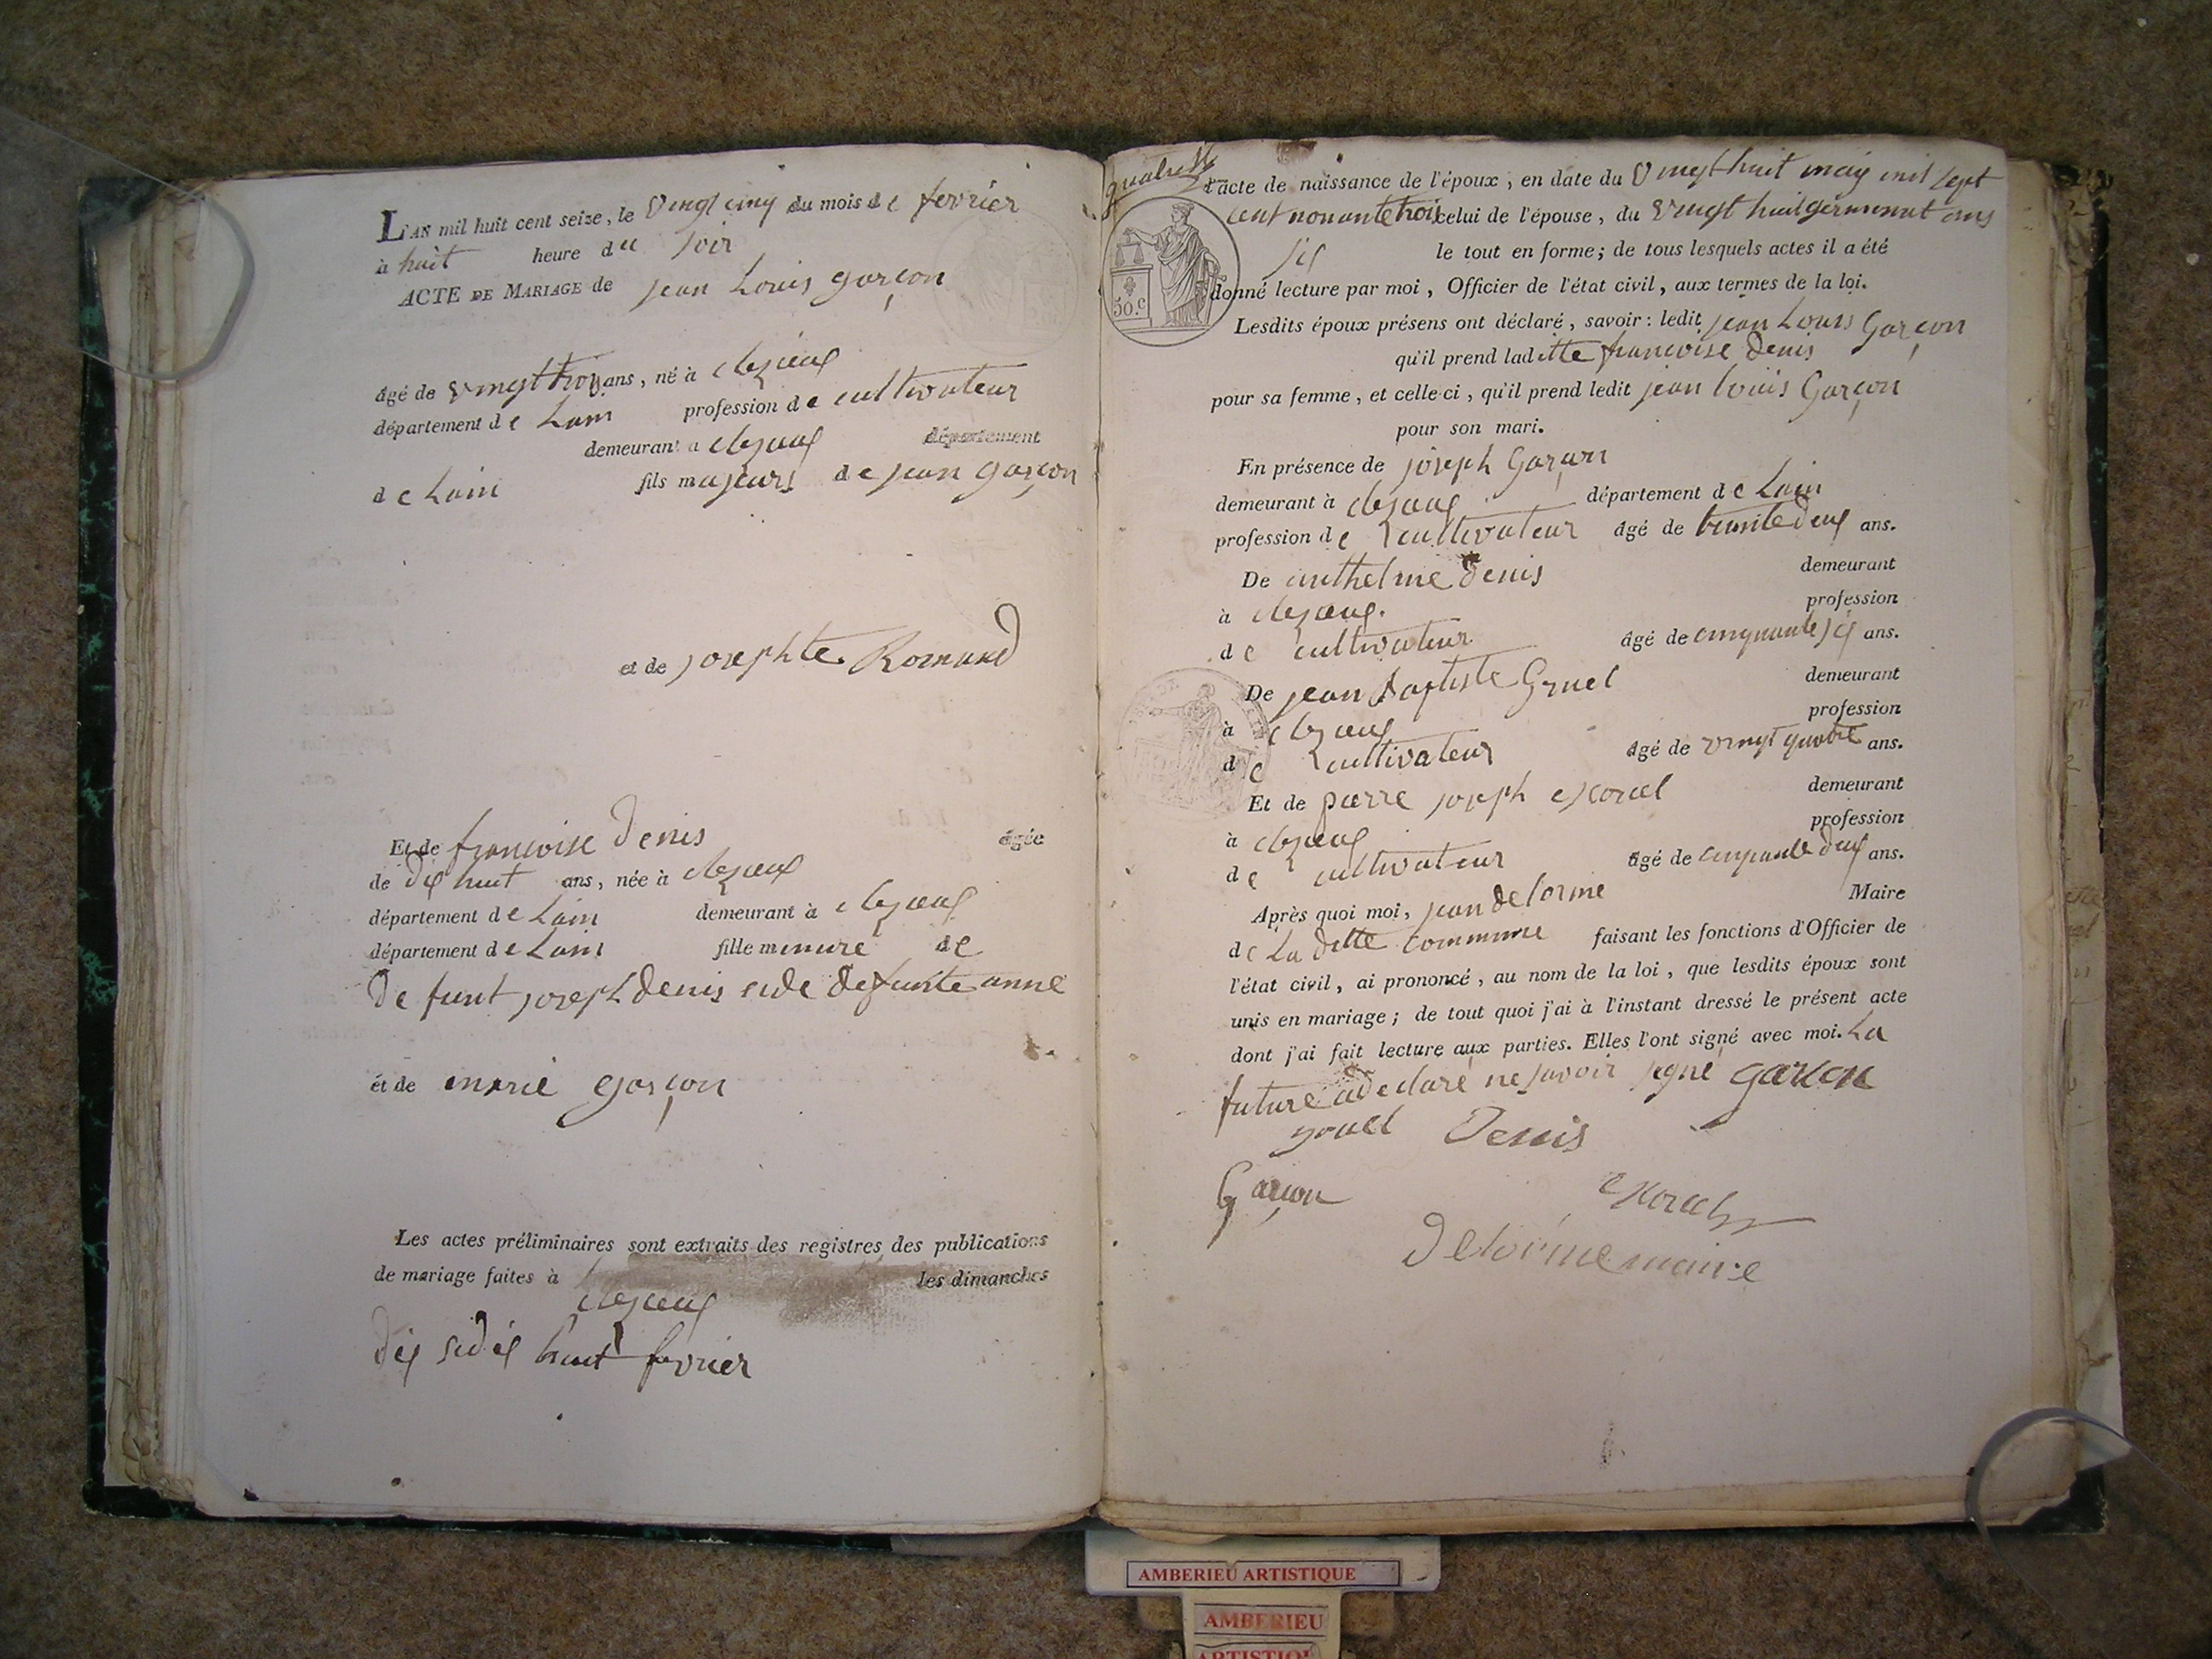 L'AN mil huit cent seize, le vingt cinq du mois de fevrier
à huit heure du soir
ACTE DE MARIAGE de jean Louis garçon
âgé de vingt trois ans, né à
département de Lain profession de cultivateur
demeurant a département
de Lain fils majeurs de jean garçon
et de josephte Romand
Et de francoise Denis âgée
de dix huit ans, née à
département de Lain demeurant à
département de Lain fille mineure de
De funt joseph denis et de defunte anne
et de marie garçon
Les actes préliminaires sont extraits des registres des publications
de mariage faites à les dimanches
dix huit fevrier
l'acte de naissance de l'époux, en date du vingt huit may mil sept
cent nonante trois celui de l'épouse, du vingt huit germinal ans
six le tout en forme; de tous lesquels actes il a été
50.c
donné lecture par moi, Officier de l'état civil, aux termes de la loi.
Lesdits époux présens ont déclaré, savoir: ledit jean Louis Garçon
qu'il prend laditte francoise Denis
pour sa femme, et celle-ci, qu'il prend ledit jean louis Garçon
pour son mari.
En présence de joseph Garçon
demeurant à département de Lain
profession de cultivateur âgé de trente deux ans.
De anthelme Denis demeurant
à profession
de cultivateur âgé de cinquante six ans.
De jean baptiste demeurant
à profession
de cultivateur âgé de vingt quatre ans.
Et de pierre joseph demeurant
à profession
de cultivateur âgé de cinquante deux ans.
Après quoi moi, jean delorme Maire
de La ditte commune faisant les fonctions d'Officier de
l'état civil, ai prononcé, au nom de la loi, que lesdits époux sont
unis en mariage; de tout quoi j'ai à l'instant dressé le présent acte
dont j'ai fait lecture aux parties. Elles l'ont signé avec moi. La
future a declaré ne savoir signé garcon
Denis
Garçon
Delorme maire
AMBERIEU ARTISTIQUE
AMBERIEU
ARTISTIQUE